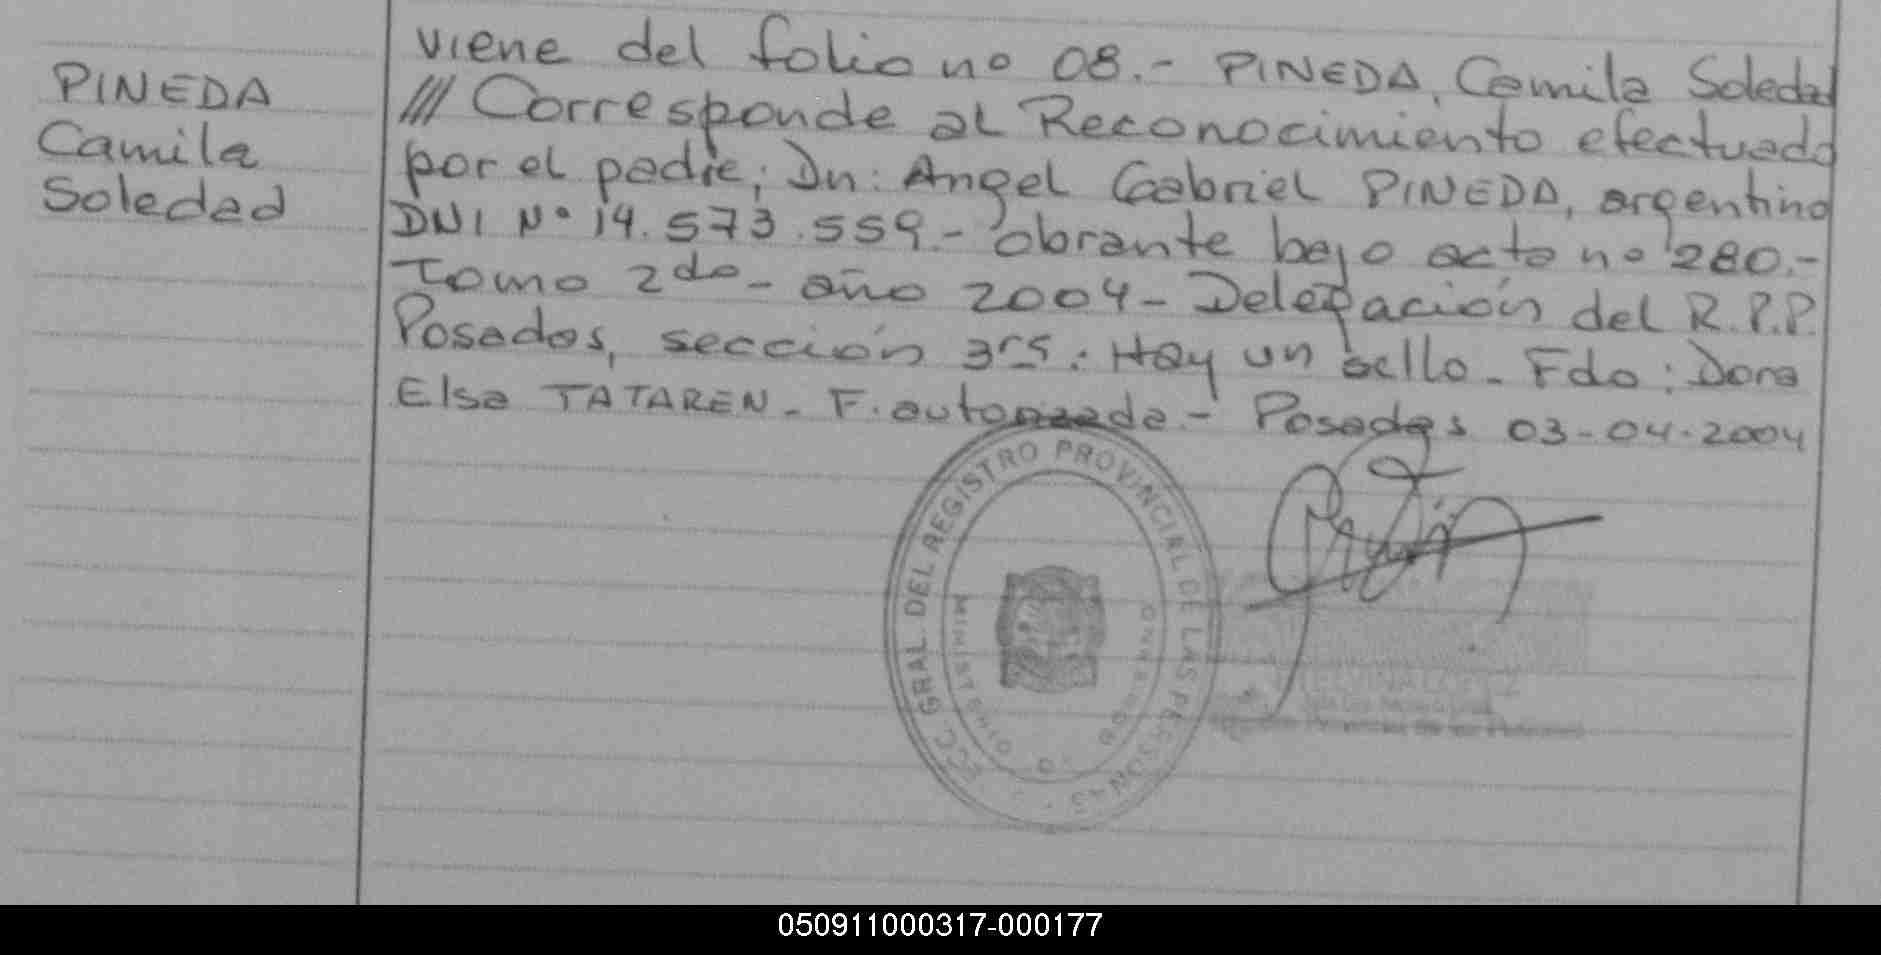 PINEDA
Camila
Soledad
viene del folio nº 08.- PINEDA, Camila Soledad
/// Corresponde al Reconocimiento efectuado
por el padre; Dn: Angel Gabriel PINEDA, argentino
DNI Nº 14.573.559.- obrante bajo acta nº 280.-
Tomo 2do - año 2004 - Delegación del R.P.P.
Posadas, sección 3ra. Hay un sello. Fdo: Dora
Elsa TATAREN - F. autorizada - Posadas 03-04-2004
GRAL. DEL REGISTRO PROVINCIAL DE LAS PERSONAS
MINISTERIO
GOBIERNO
050911000317-000177